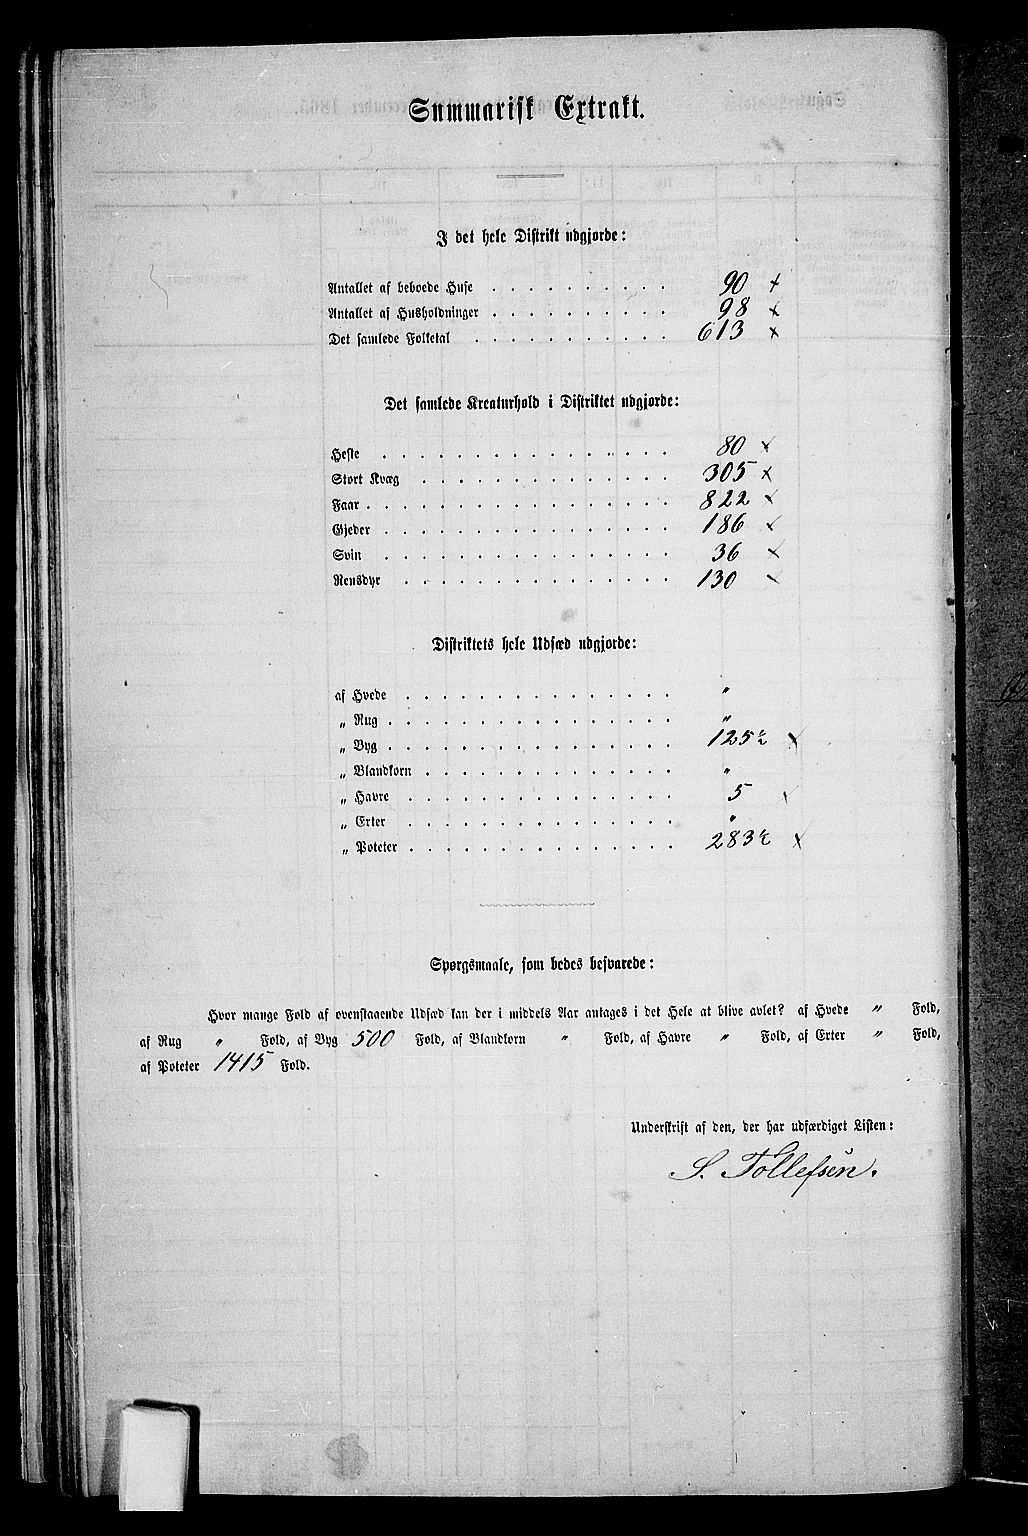 Summarisk Extrakt.
I det hele Distrikt udgjorde:
Antallet af beboede Huse . . . . . . . . . . 90 ×
Antallet af Husholdninger . . . . . . . . . . 98 ×
Det samlede Folketal . . . . . . . . . . . 613 ×
Det samlede Kreaturhold i Distriktet udgjorde:
Heste . . . . . . . . . . . . . . . . 80 ×
Stort Kvæg . . . . . . . . . . . . . . 305 ×
Faar . . . . . . . . . . . . . . . . . 822 ×
Gjeder . . . . . . . . . . . . . . . . 186 ×
Svin . . . . . . . . . . . . . . . . 36 ×
Rensdyr . . . . . . . . . . . . . . . 130 ×
Distriktets hele Udsæd udgjorde:
af Hvede . . . . . . . . . . . . . . . „
„ Rug . . . . . . . . . . . . . . . . „
„ Byg . . . . . . . . . . . . . . . . 125½ ×
„ Blandkorn . . . . . . . . . . . . . . „
„ Havre . . . . . . . . . . . . . . . 5 ×
„ Erter . . . . . . . . . . . . . . . „
„ Poteter . . . . . . . . . . . . . . . 283½ ×
Spørgsmaale, som bedes besvarede:
Hvor mange Fold af ovenstaaende Udsæd kan der i middels Aar antages i det Hele at blive avlet? af Hvede „ Fold,
af Rug „ Fold, af Byg 500 Fold, af Blandkorn „ Fold, af Havre „ Fold, af Erter „ Fold,
af Poteter 1415 Fold.
Underskrift af den, der har udfærdiget Listen:
S. Tollefsen.